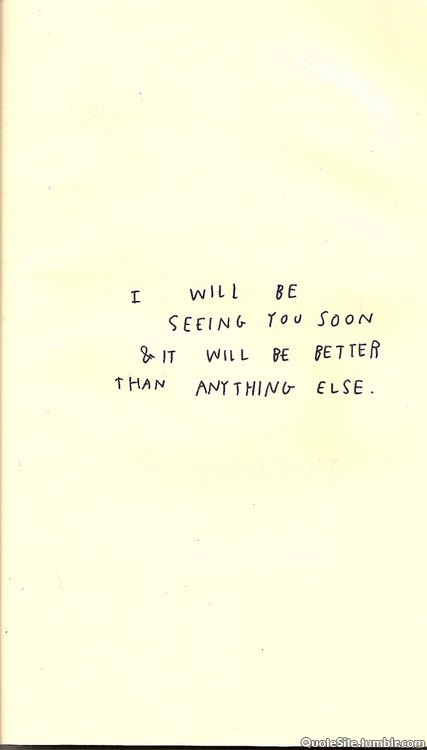 I WILL BE
SEEING YOU SOON
& IT WILL BE BETTER
THAN ANYTHING ELSE.
QuoteSite.tumblr.com